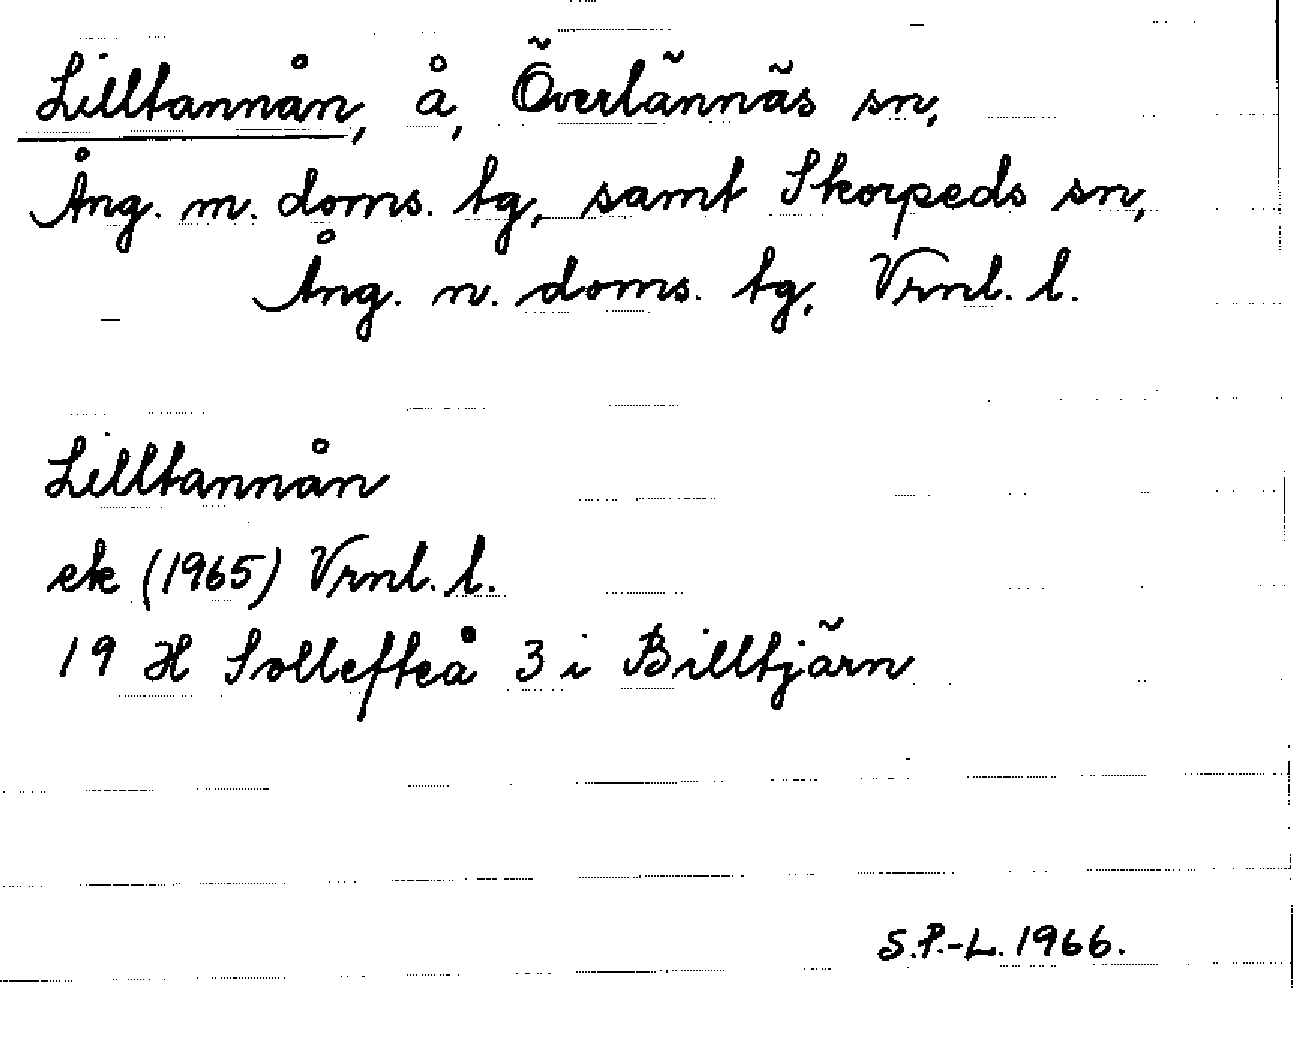 Lilltannån, å, Överlännäs sn,
Ång. m. doms. tg, samt Skorpeds sn,
Ång. n. doms. tg, Vrnl. l.
Lilltannån
ek (1965) Vrnl. l.
19 H Sollefteå 3 i Billtjärn
S.P.-L. 1966.